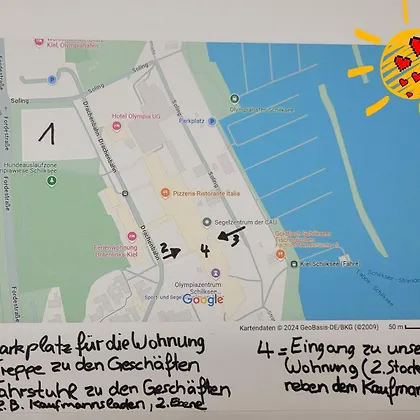 Kiel, Olympiahafen
Fördestraße
P
Soling
Soling
Soling
Drachenbahn
Drachenbahn
Hotel Olympia UG
Parkplatz P
Olympiahafen Schilksee
1
Hundeauslaufzone
piawiese Schilksee
Fördestraße
Pizzeria-Ristorante Italia
Segelzentrum der CAU
3
2
4
Drachenbahn
Ferienwohnung
Kiel
Kiel-Schilksee (Fähre)
Olympiazentrum
Schilksee
Sport- und
Google
Kartendaten © 2024 GeoBasis-DE/BKG (©2009)
50 m
arkplatz für die Wohnung
reppe zu den Geschäften
ahrstuhl zu den Geschäften
z.B. Kaufmannsladen, 2. Ebene
4 = Eingang zu unse
Wohnung (2. Stock
neben dem Kaufman